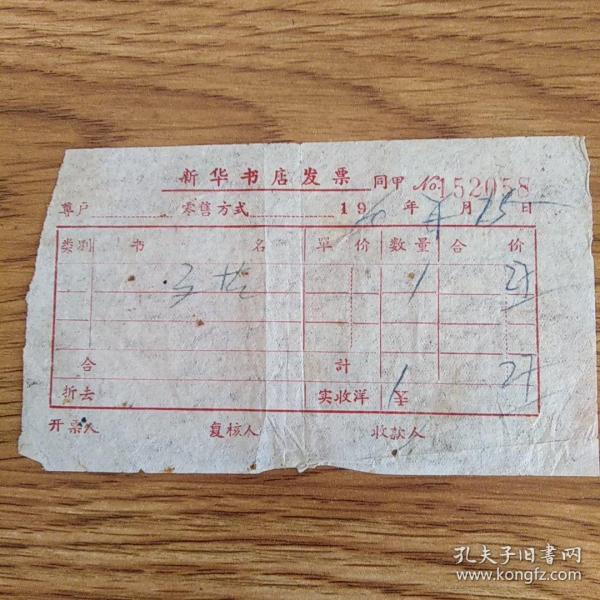 新华书店发票 同甲 No.152058
尊户 零售方式 19 年 月 15日
类别 书名 單价 数量 合价
1
合計
折去 实收洋
开票人 复核人 收款人
孔夫子旧书网
www.kongfz.com